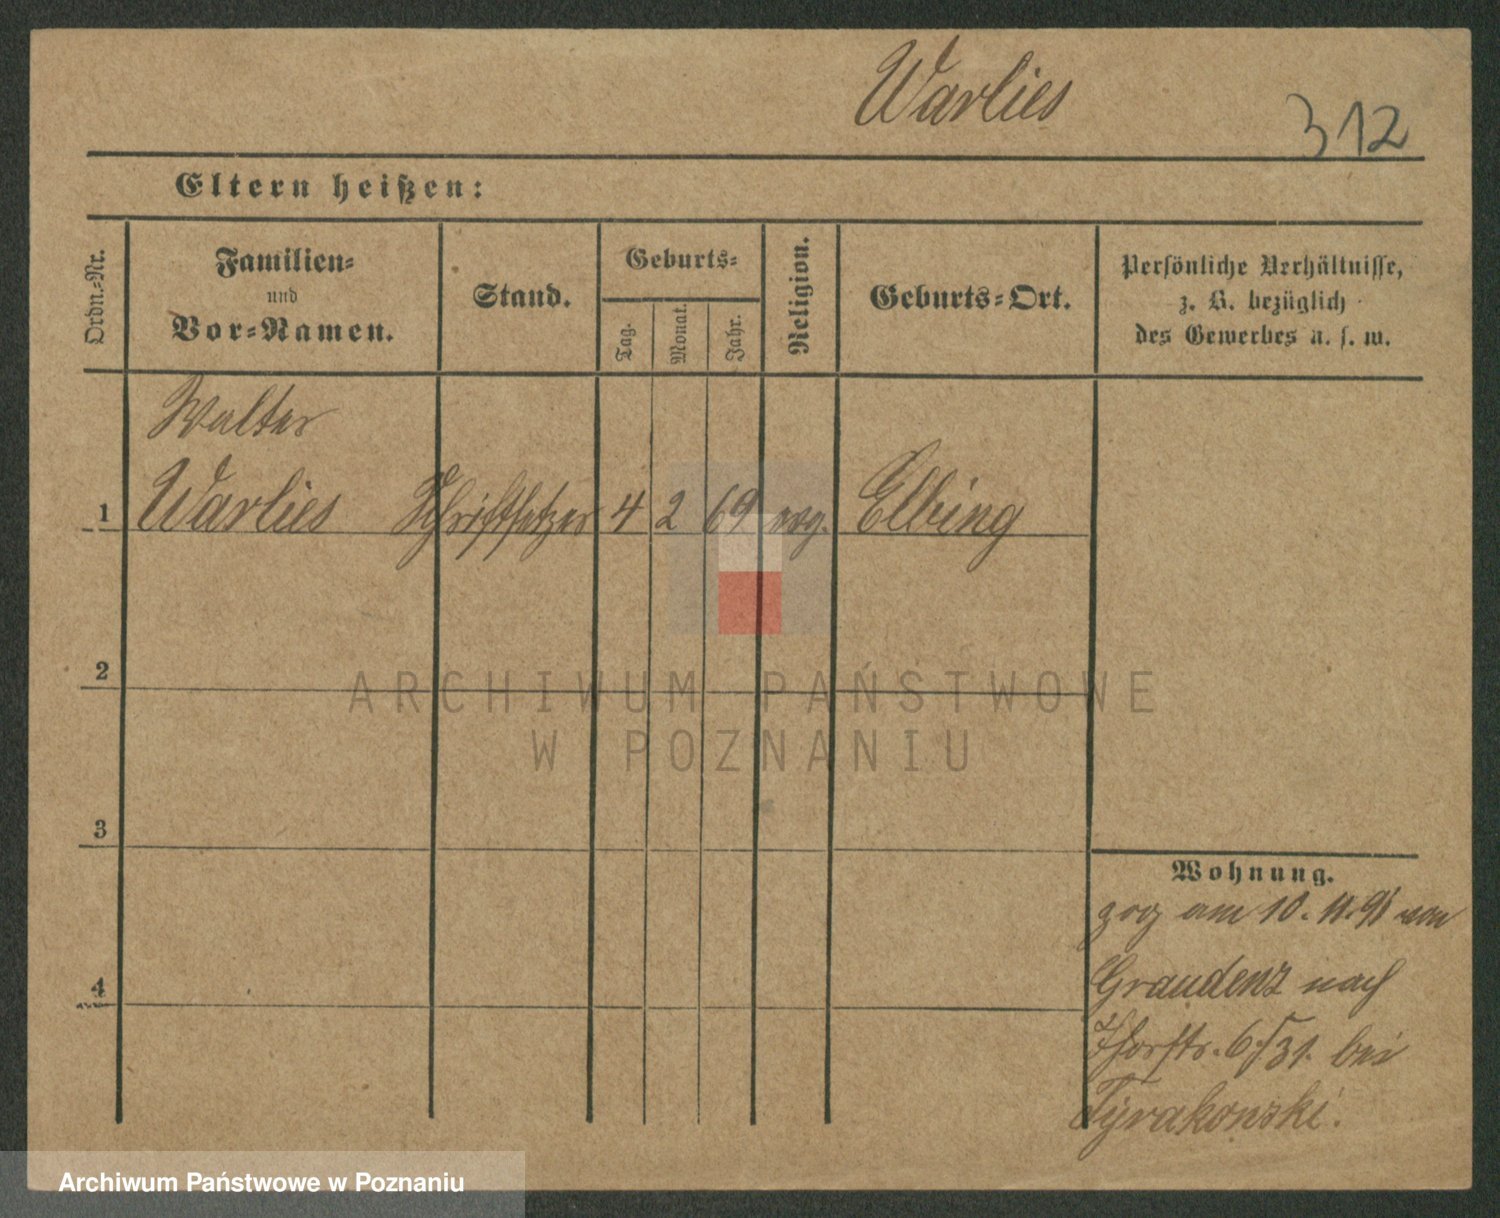 Warlies
312
Eltern heißen:
Ordn.-Nr.
Familien-
und
Vor-Namen.
Stand.
Geburts-
Tag.
Monat.
Jahr.
Religion.
Geburts-Ort.
Persönliche Verhältnisse,
z. B. bezüglich
des Gewerbes u. s. w.
Walter
1 Warlies Schriftsetzer 4 2 69 evg. Elbing
2
3
4
ARCHIWUM PAŃSTWOWE
W POZNANIU
Wohnung.
zog am 10. 11. 91 von
Graudenz nach
6/31. bei
Tyrakowski.
Archiwum Państwowe w Poznaniu